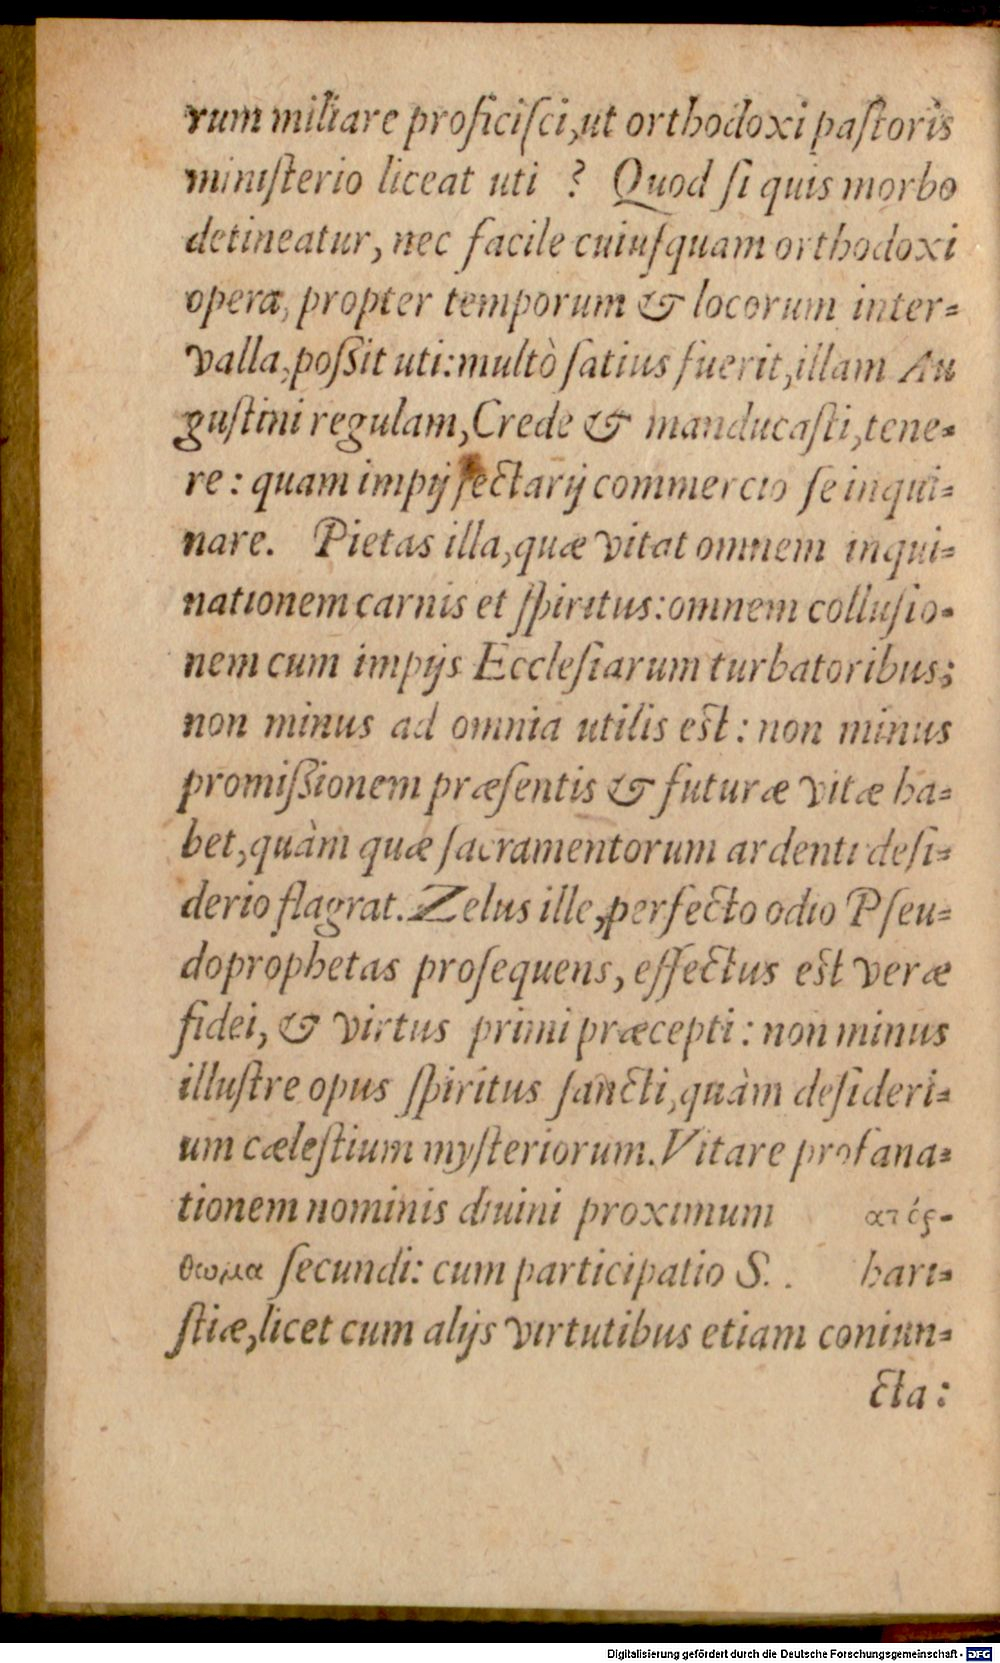 rum miliare proficiſci, ut orthodoxi paſtoris
miniſterio liceat uti ? Quod ſi quis morbo
detineatur, nec facile cuiuſquam orthodoxi
opera, propter temporum & locorum inter-
valla, poßit uti: multò ſatius fuerit, illam Au
guſtini regulam, Crede & manducaſti, tene-
re: quam impij ſectarij commercio ſe inqui-
nare. Pietas illa, quæ vitat omnem inqui-
nationem carnis et ſpiritus: omnem colluſio-
nem cum impijs Eccleſiarum turbatoribus;
non minus ad omnia utilis est: non minus
promißionem præſentis & futuræ vitæ ha-
bet, quàm quæ ſacramentorum ardenti deſi-
derio flagrat. Zelus ille, perfecto odio Pſeu-
doprophetas proſequens, effectus est veræ
fidei, & virtus primi præcepti: non minus
illuſtre opus ſpiritus ſancti, quàm deſideri-
um cæleſtium myſteriorum. Vitare profana-
tionem nominis diuini proximum
θωμα ſecundi: cum participatio S. hari-
ſtiæ, licet cum alijs virtutibus etiam coniun-
cta:
Digitalisierung gefördert durch die Deutsche Forschungsgemeinschaft - DFG